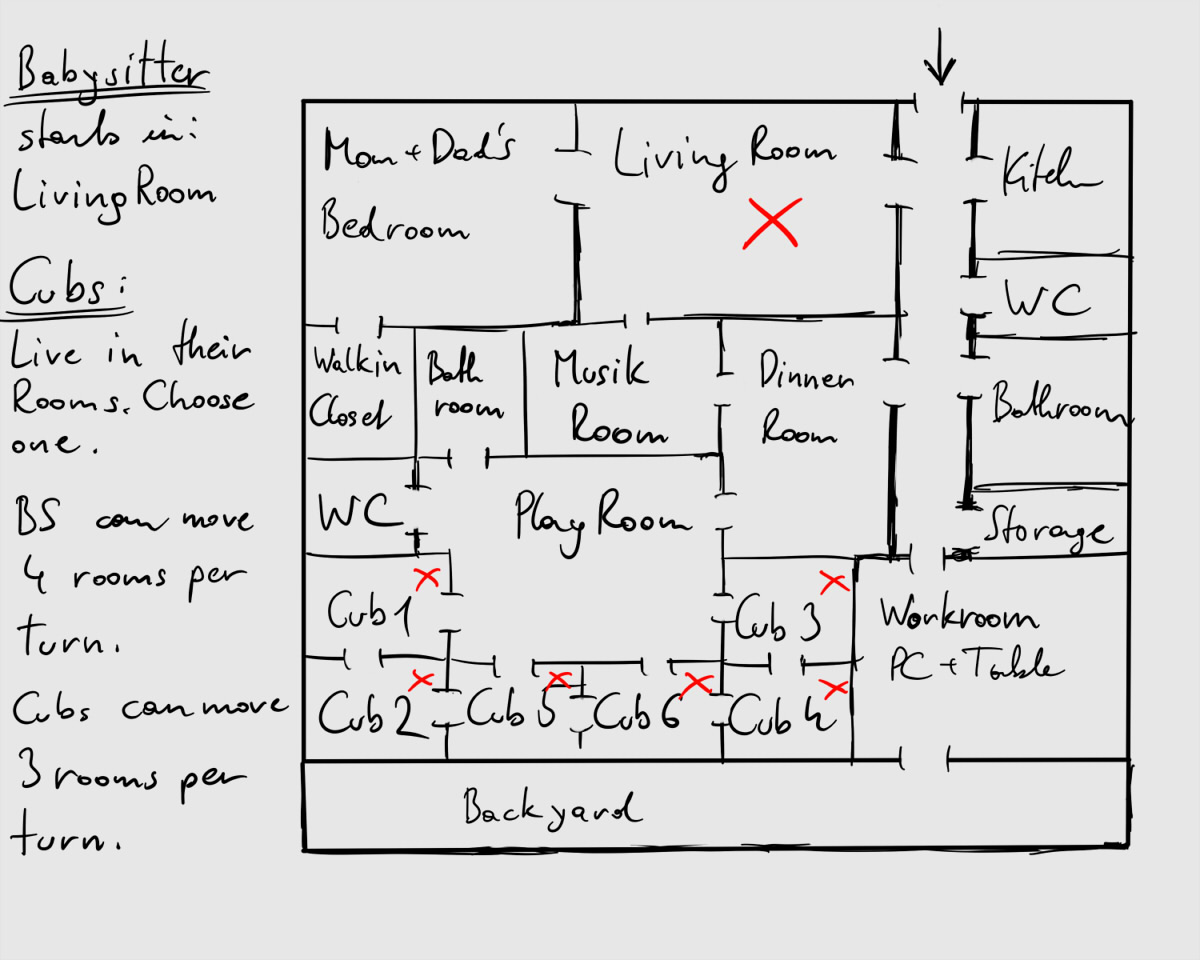 Babysitter
starts in:
Living Room
Cubs:
Live in their
Rooms. Choose
one.
BS can move
4 rooms per
turn.
Cubs can move
3 rooms per
turn.
Mom + Dad's
Bedroom
Living Room
Kitchn
WC
Walk in
Closet
Bath
room
Musik
Room
Dinner
Room
Bathroom
WC
Play Room
Storage
Cub 1
Cub 3
Workroom
PC + Table
Cub 2
Cub 5
Cub 6
Cub 4
Backyard